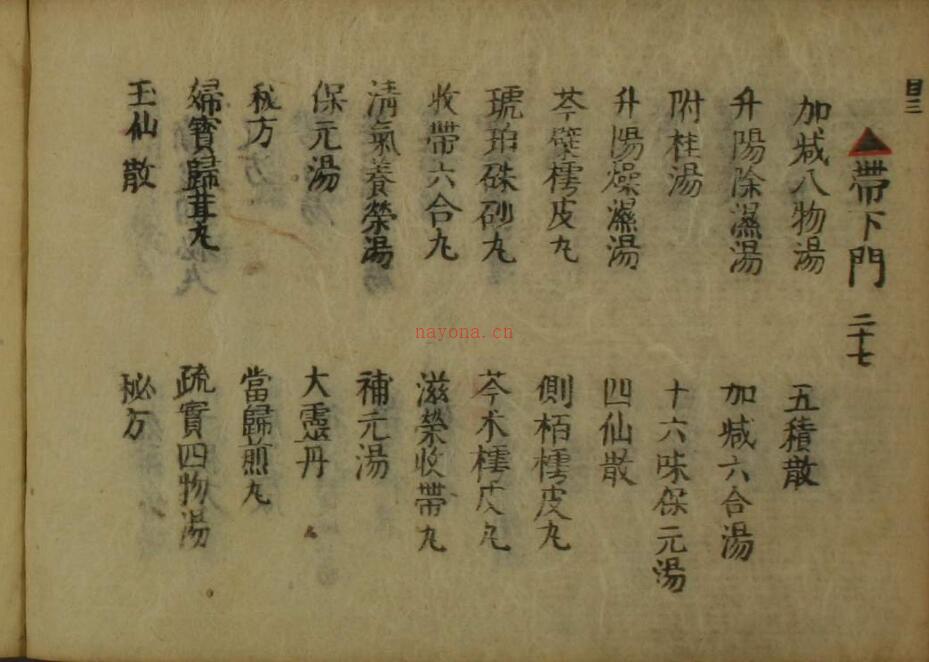 目三
帶下門 二十七
加减八物湯 五積散
升陽除濕湯 加减六合湯
附桂湯 十六味保元湯
升陽燥濕湯 四仙散
芩蘗樗皮丸 側栢樗皮丸
琥珀硃砂丸 芩术樗皮丸
收帶六合丸 滋榮收帶丸
清氣養榮湯 補元湯
保元湯 大靈丹
秘方 當歸煎丸
婦寳歸茸丸 疏實四物湯
玉仙散 秘方
nayona.cn